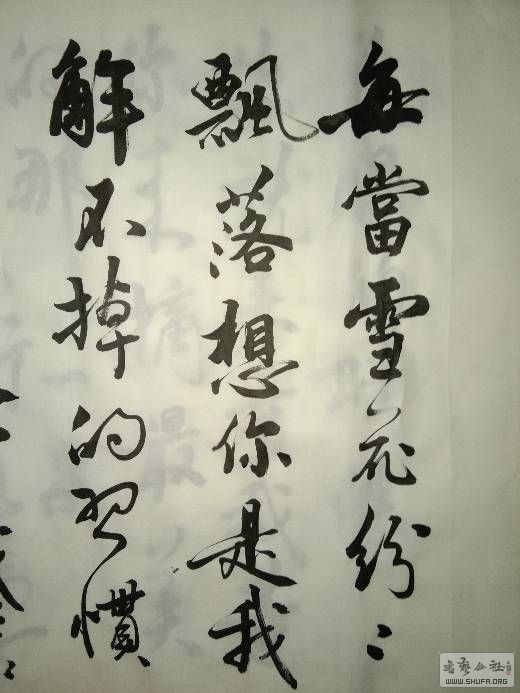 每當雪花紛紛
飄落想你是我
解不掉的習慣
書藝公社
WWW.SHUFA.ORG